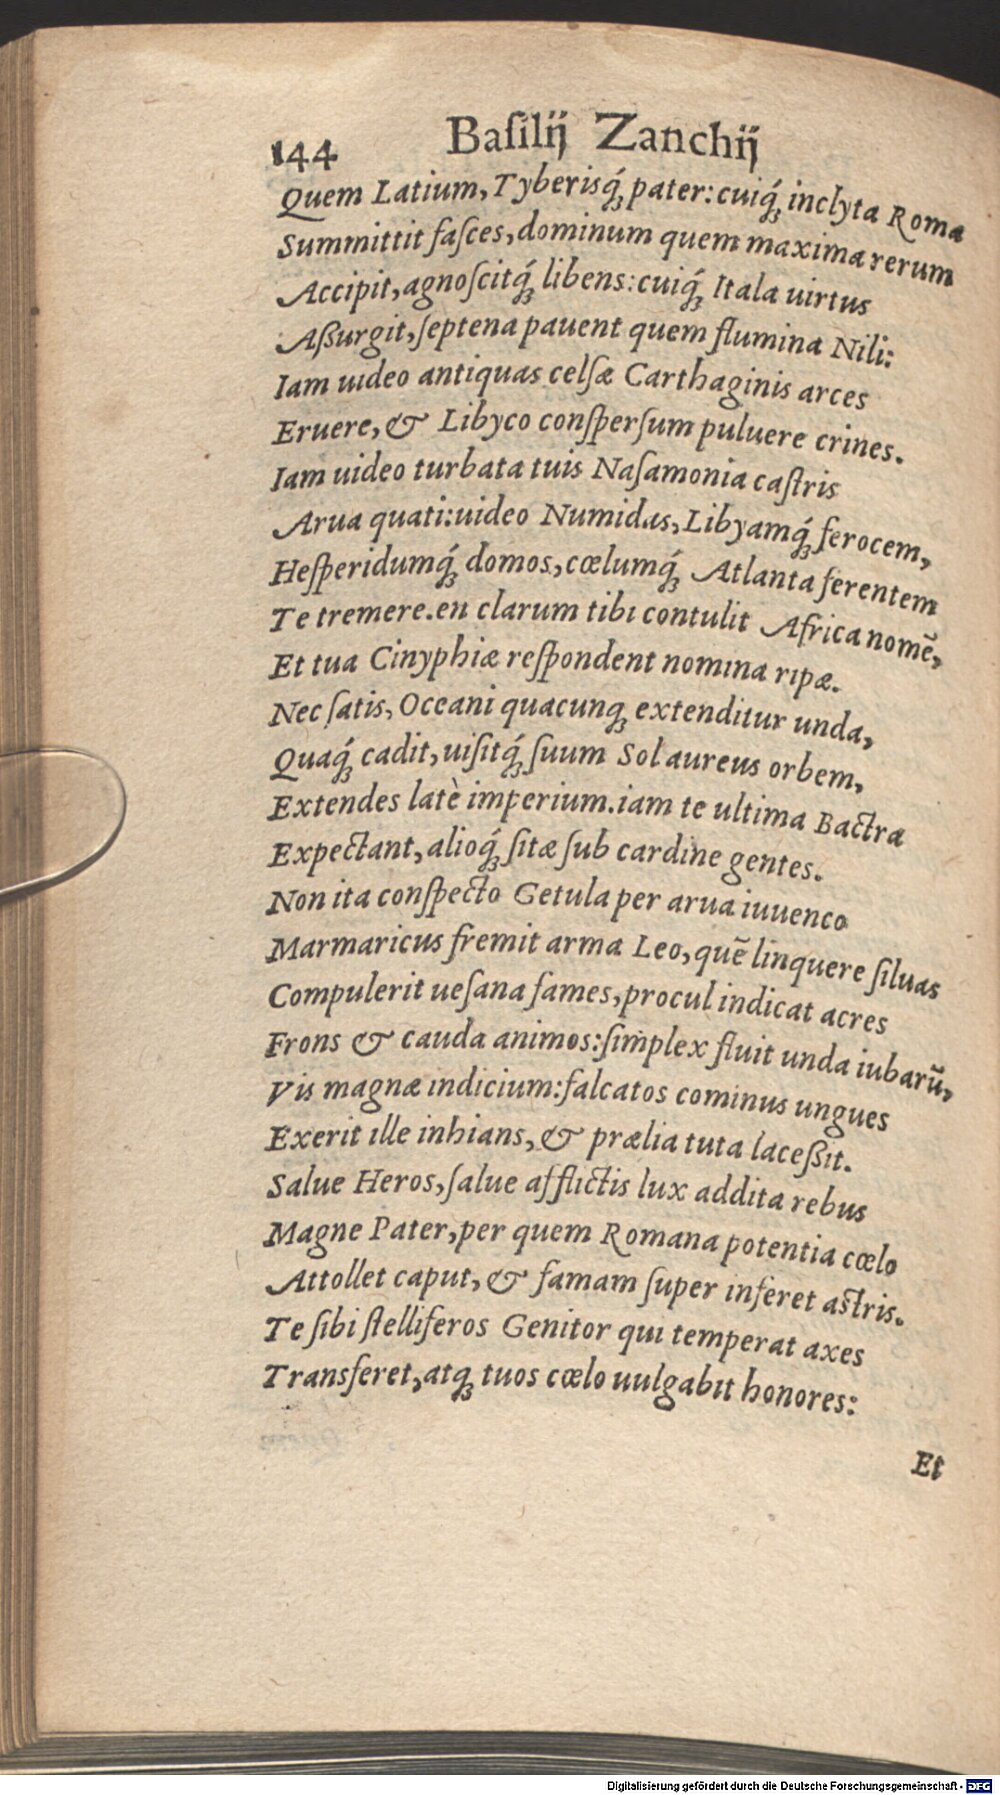 144 Baſilij Zanchij
Quem Latium, Tyberisq́ꝫ pater: cuiq́ꝫ inclyta Roma
Summittit faſces, dominum quem maxima rerum
Accipit, agnoſcitq́ꝫ libens: cuiq́ꝫ Itala uirtus
Aßurgit, ſeptena pauent quem flumina Nili:
Iam uideo antiquas celſæ Carthaginis arces
Eruere, & Libyco conſperſum puluere crines.
Iam uideo turbata tuis Naſamonia caſtris
Arua quati: uideo Numidas, Libyamq́ꝫ ferocem,
Heſperidumq́ꝫ domos, cœlumq́ꝫ Atlanta ferentem
Te tremere. en clarum tibi contulit Africa nomē,
Et tua Cinyphiæ reſpondent nomina ripæ.
Nec ſatis, Oceani quacunqꝫ extenditur unda,
Quaq́ꝫ cadit, uiſitq́ꝫ ſuum Sol aureus orbem,
Extendes latè imperium. iam te ultima Bactra
Expectant, alioq́ꝫ ſitæ ſub cardine gentes.
Non ita conſpecto Getula per arua iuuenco
Marmaricus fremit arma Leo, quē linquere ſiluas
Compulerit ueſana fames, procul indicat acres
Frons & cauda animos: ſimplex fluit unda iubarū,
Vis magnæ indicium: falcatos cominus ungues
Exerit ille inhians, & prælia tuta laceßit.
Salue Heros, ſalue afflictis lux addita rebus
Magne Pater, per quem Romana potentia cœlo
Attollet caput, & famam ſuper inferet aſtris.
Te ſibi ſtelliferos Genitor qui temperat axes
Transferet, atqꝫ tuos cœlo uulgabit honores:
Et
Digitalisierung gefördert durch die Deutsche Forschungsgemeinschaft - DFG